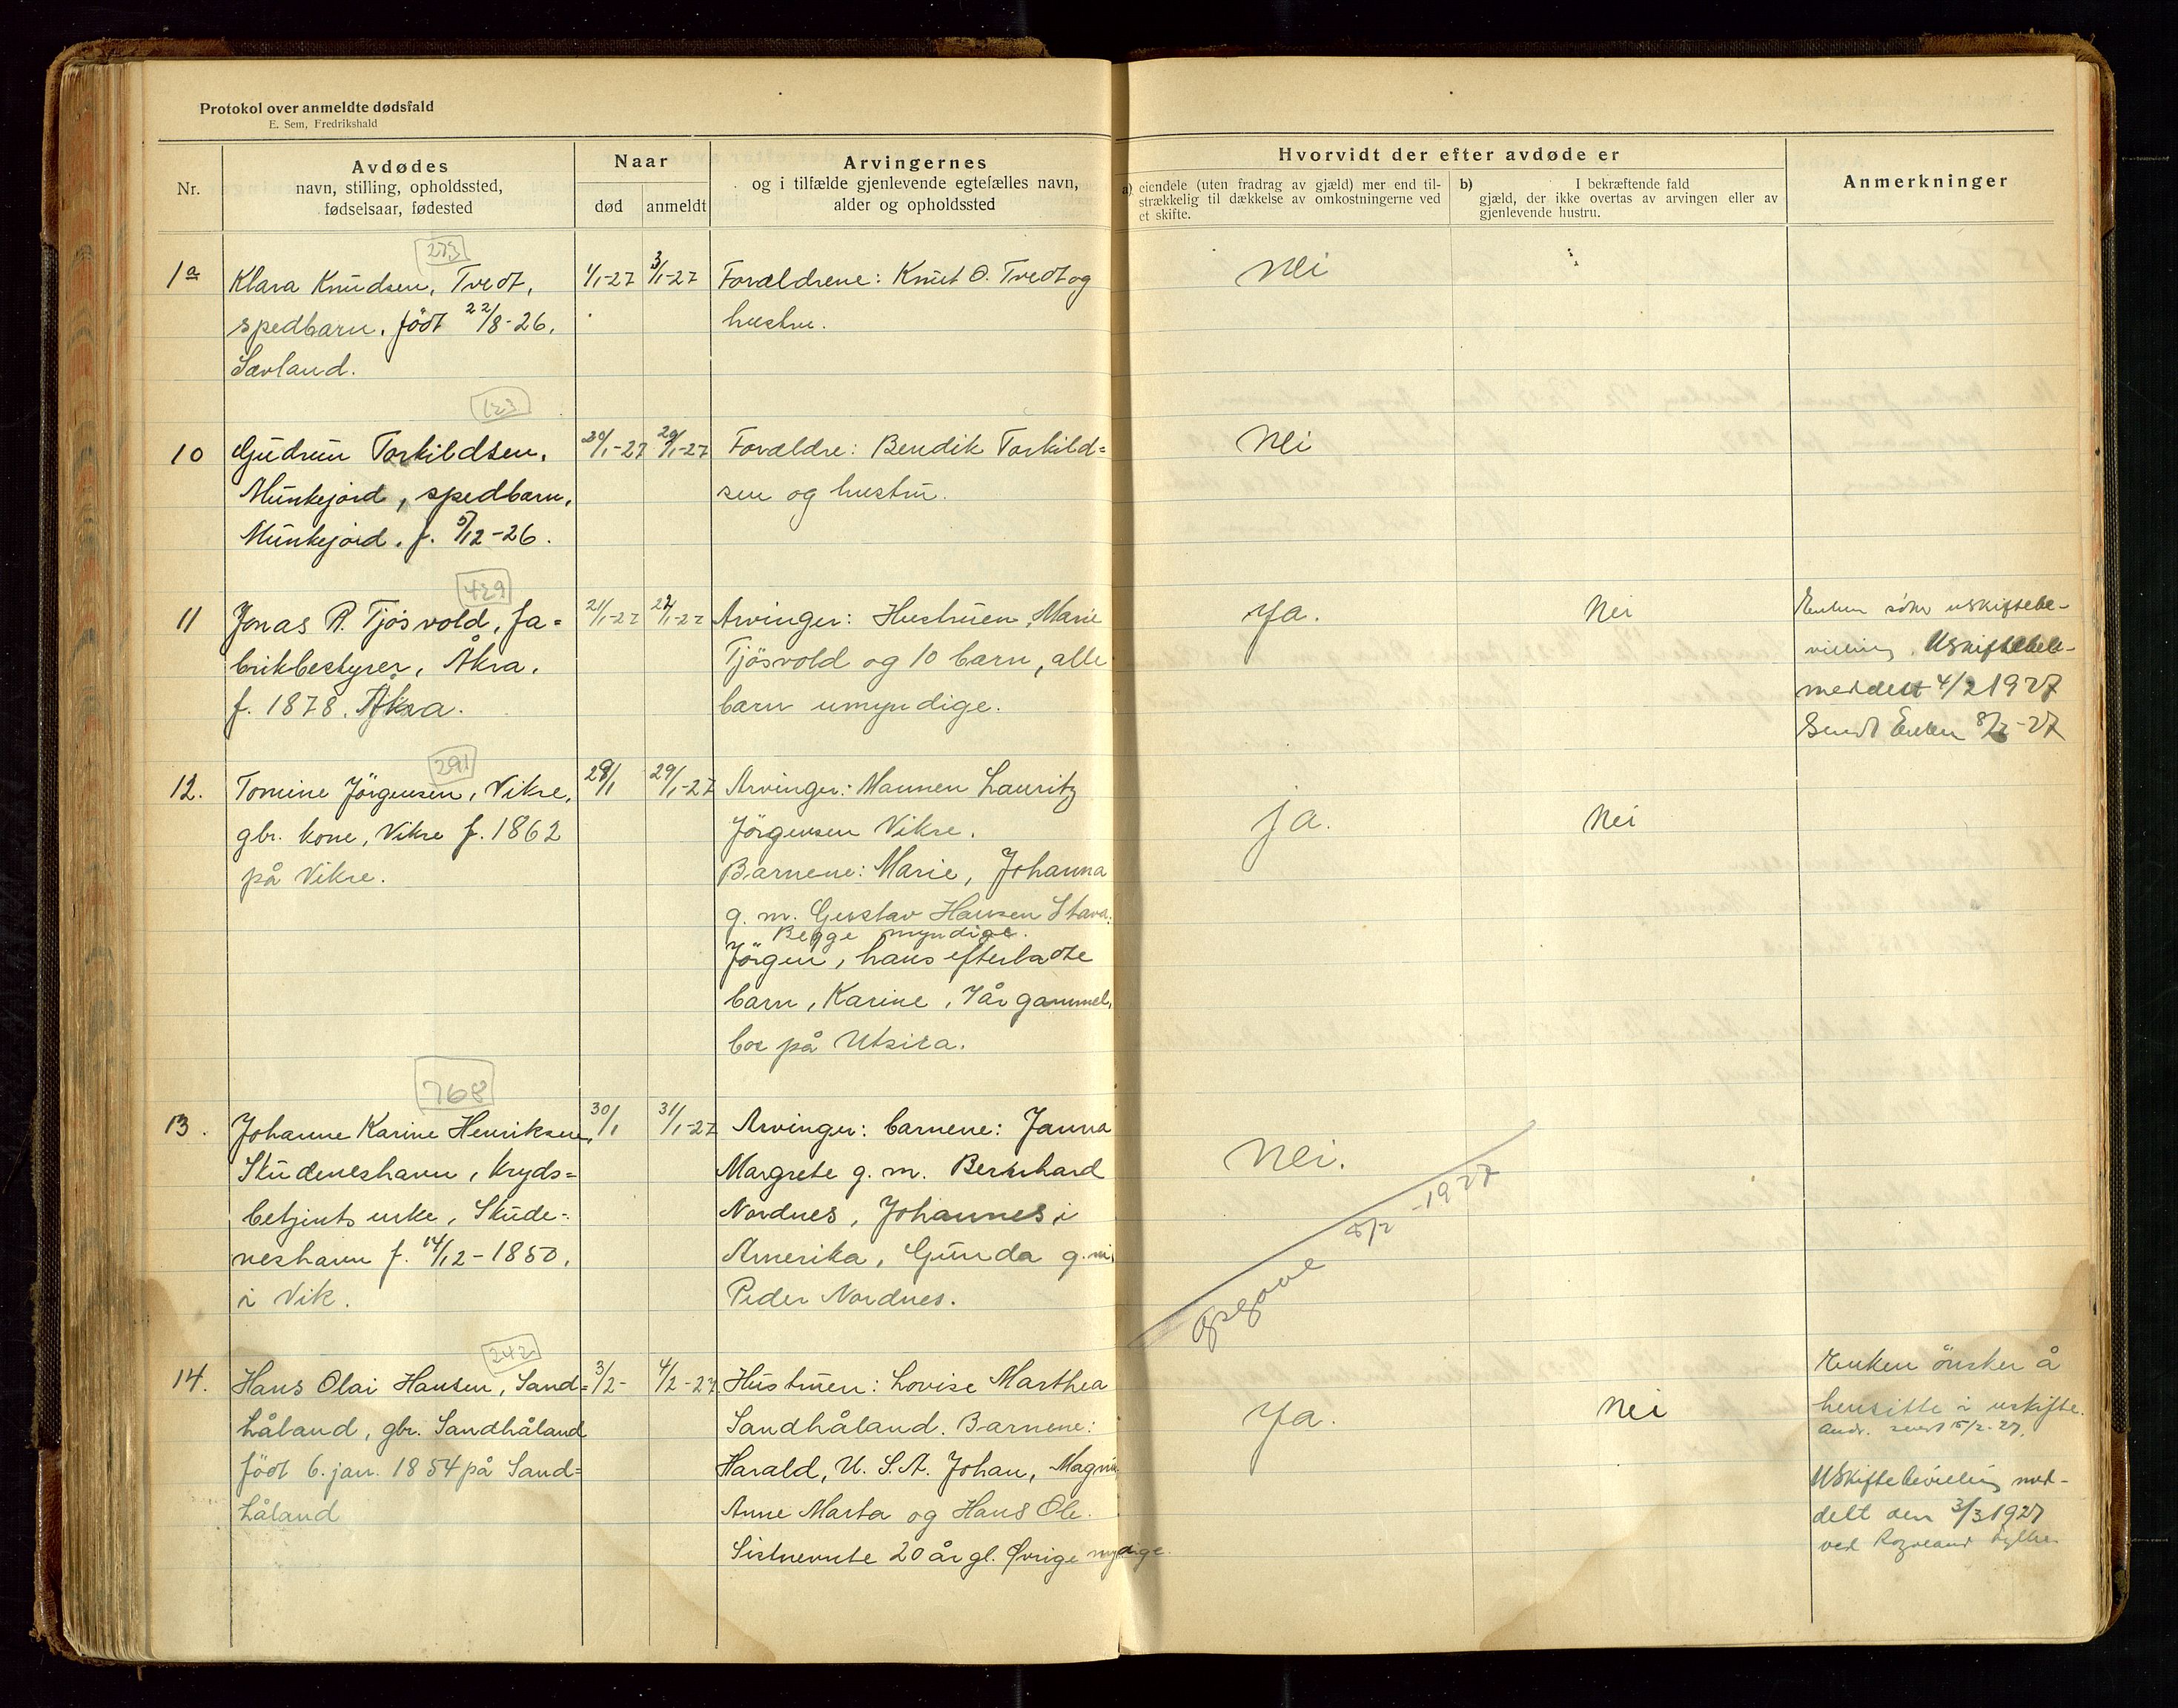 Protokol over anmeldte dødsfald
E. Sem, Fredrikshald
Nr.
Avdødes
navn, stilling, opholdssted,
fødselsaar, fødested
Naar
død
anmeldt
Arvingernes
og i tilfælde gjenlevende egtefælles navn,
alder og opholdssted
Hvorvidt der efter avdøde er
a) eiendele (uten fradrag av gjæld) mer end til-
strækkelig til dækkelse av omkostningerne ved
et skifte.
b) I bekræftende fald
gjæld, der ikke overtas av arvingen eller av
gjenlevende hustru.
Anmerkninger
273
1a Klara Knudsen, Tvedt, 1/1-27 3/1-27 Forældrene: Knut O. Tvedt og Nei
spedbarn, født 22/8-26. hustru.
Sævland.
123
10 Gudrun Torkildsen, 20/1-27 29/1-27 Forældre: Bendik Torkild= Nei
Munkejord, spedbarn, sen og hustru.
Munkejord. f. 5/12-26.
429
11 Jonas R. Tjösvold, fa= 21/1-27 24/1-27 Arvinger: Hustruen, Marie Ja. Nei Enken söker uskiftebe-
brikbestyrer, Åkra. Tjösvold og 10 barn, alle villing. Uskiftebebe-
f. 1878. Åkra. barn umyndige. meddelt 4/2 1927
Sendt Enken 8/2-27
291
12. Tomine Jörgensen, Vikre, 28/1 29/1-27 Arvinger: Mannen Lauritz ja. Nei
gbr. kone, Vikre f. 1862 Jörgensen Vikre.
på Vikre. Barnene: Marie, Johanna
g. m. Gustav Hansen Stava.
Begge myndige.
Jörgen, hans efterladte
barn, Karine, 7 år gammel,
bor på Utsira.
768
13. Johanne Karine Henriksen, 30/1 31/1-27 Arvinger: barnene: Janna Nei.
Skudeneshavn, kryds= Margrete g. m. Bernhard
betjents enke, Skude= Nordnes, Johannes i
neshavn f. 14/12-1850, Amerika, Gunda g. m.
i Vik. Peder Nordnes.
Opgave 5/2-1927
242
14. Hans Olai Hansen, Sand= 3/2- 4/2-27 Hustruen: Lovise Marthea Ja. Nei Enken önsker å
håland, gbr. Sandhåland Sandhåland. Barnene: hensitte i uskifte.
Andr. sendt 15/2-27.
född 6. jan. 1854 på Sand= Harald, U. S. A. Johan, Magni Uskiftebevilling med-
håland Anne Marta og Hans Ole. delt den 3/3 1927
Sistnevnte 20 år gl. Øvrige myndige. ved Rogaland fylke